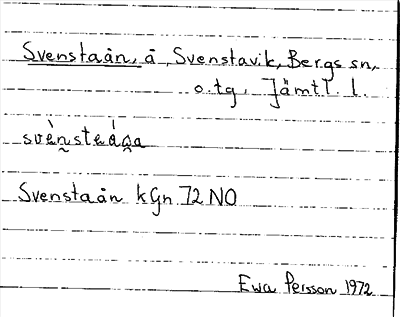 Svenstaån, å, Svenstavik, Bergs sn,
o. tg. Jämtl. l.
svèn̰steá̀ga
Svenstaån kGn 72 NO
Ewa Persson 1972